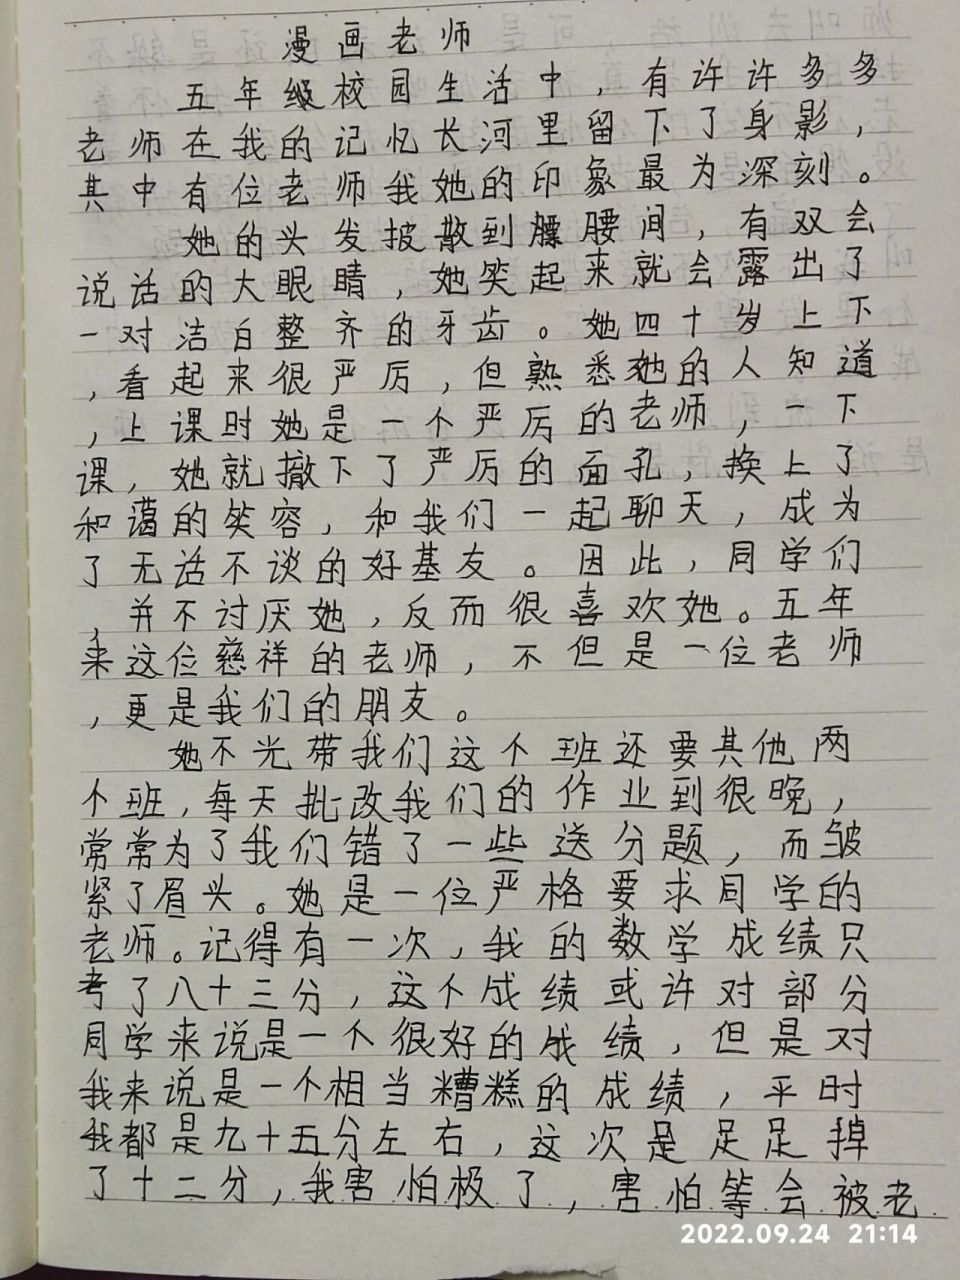 漫画老师
五年级校园生活中，有许许多多
老师在我的记忆长河里留下了身影，
其中有位老师我她的印象最为深刻。
她的头发披散到腰间，有双会
说话的大眼睛，她笑起来就会露出了
一对洁白整齐的牙齿。她四十岁上下
，看起来很严厉，但熟悉她的人知道
，上课时她是一个严厉的老师，一下
课，她就撤下了严厉的面孔，换上了
和蔼的笑容，和我们一起聊天，成为
了无话不谈的好基友。因此，同学们
，并不讨厌她，反而很喜欢她。五年
来这位慈祥的老师，不但是一位老师
，更是我们的朋友。
她不光带我们这个班还要其他两
个班，每天批改我们的作业到很晚，
常常为了我们错了一些送分题，而皱
紧了眉头。她是一位严格要求同学的
老师。记得有一次，我的数学成绩只
考了八十三分，这个成绩或许对部分
同学来说是一个很好的成绩，但是对
我来说是一个相当糟糕的成绩，平时
我都是九十五分左右，这次是足足掉
了十二分，我害怕极了，害怕等会被老
2022.09.24 21:14